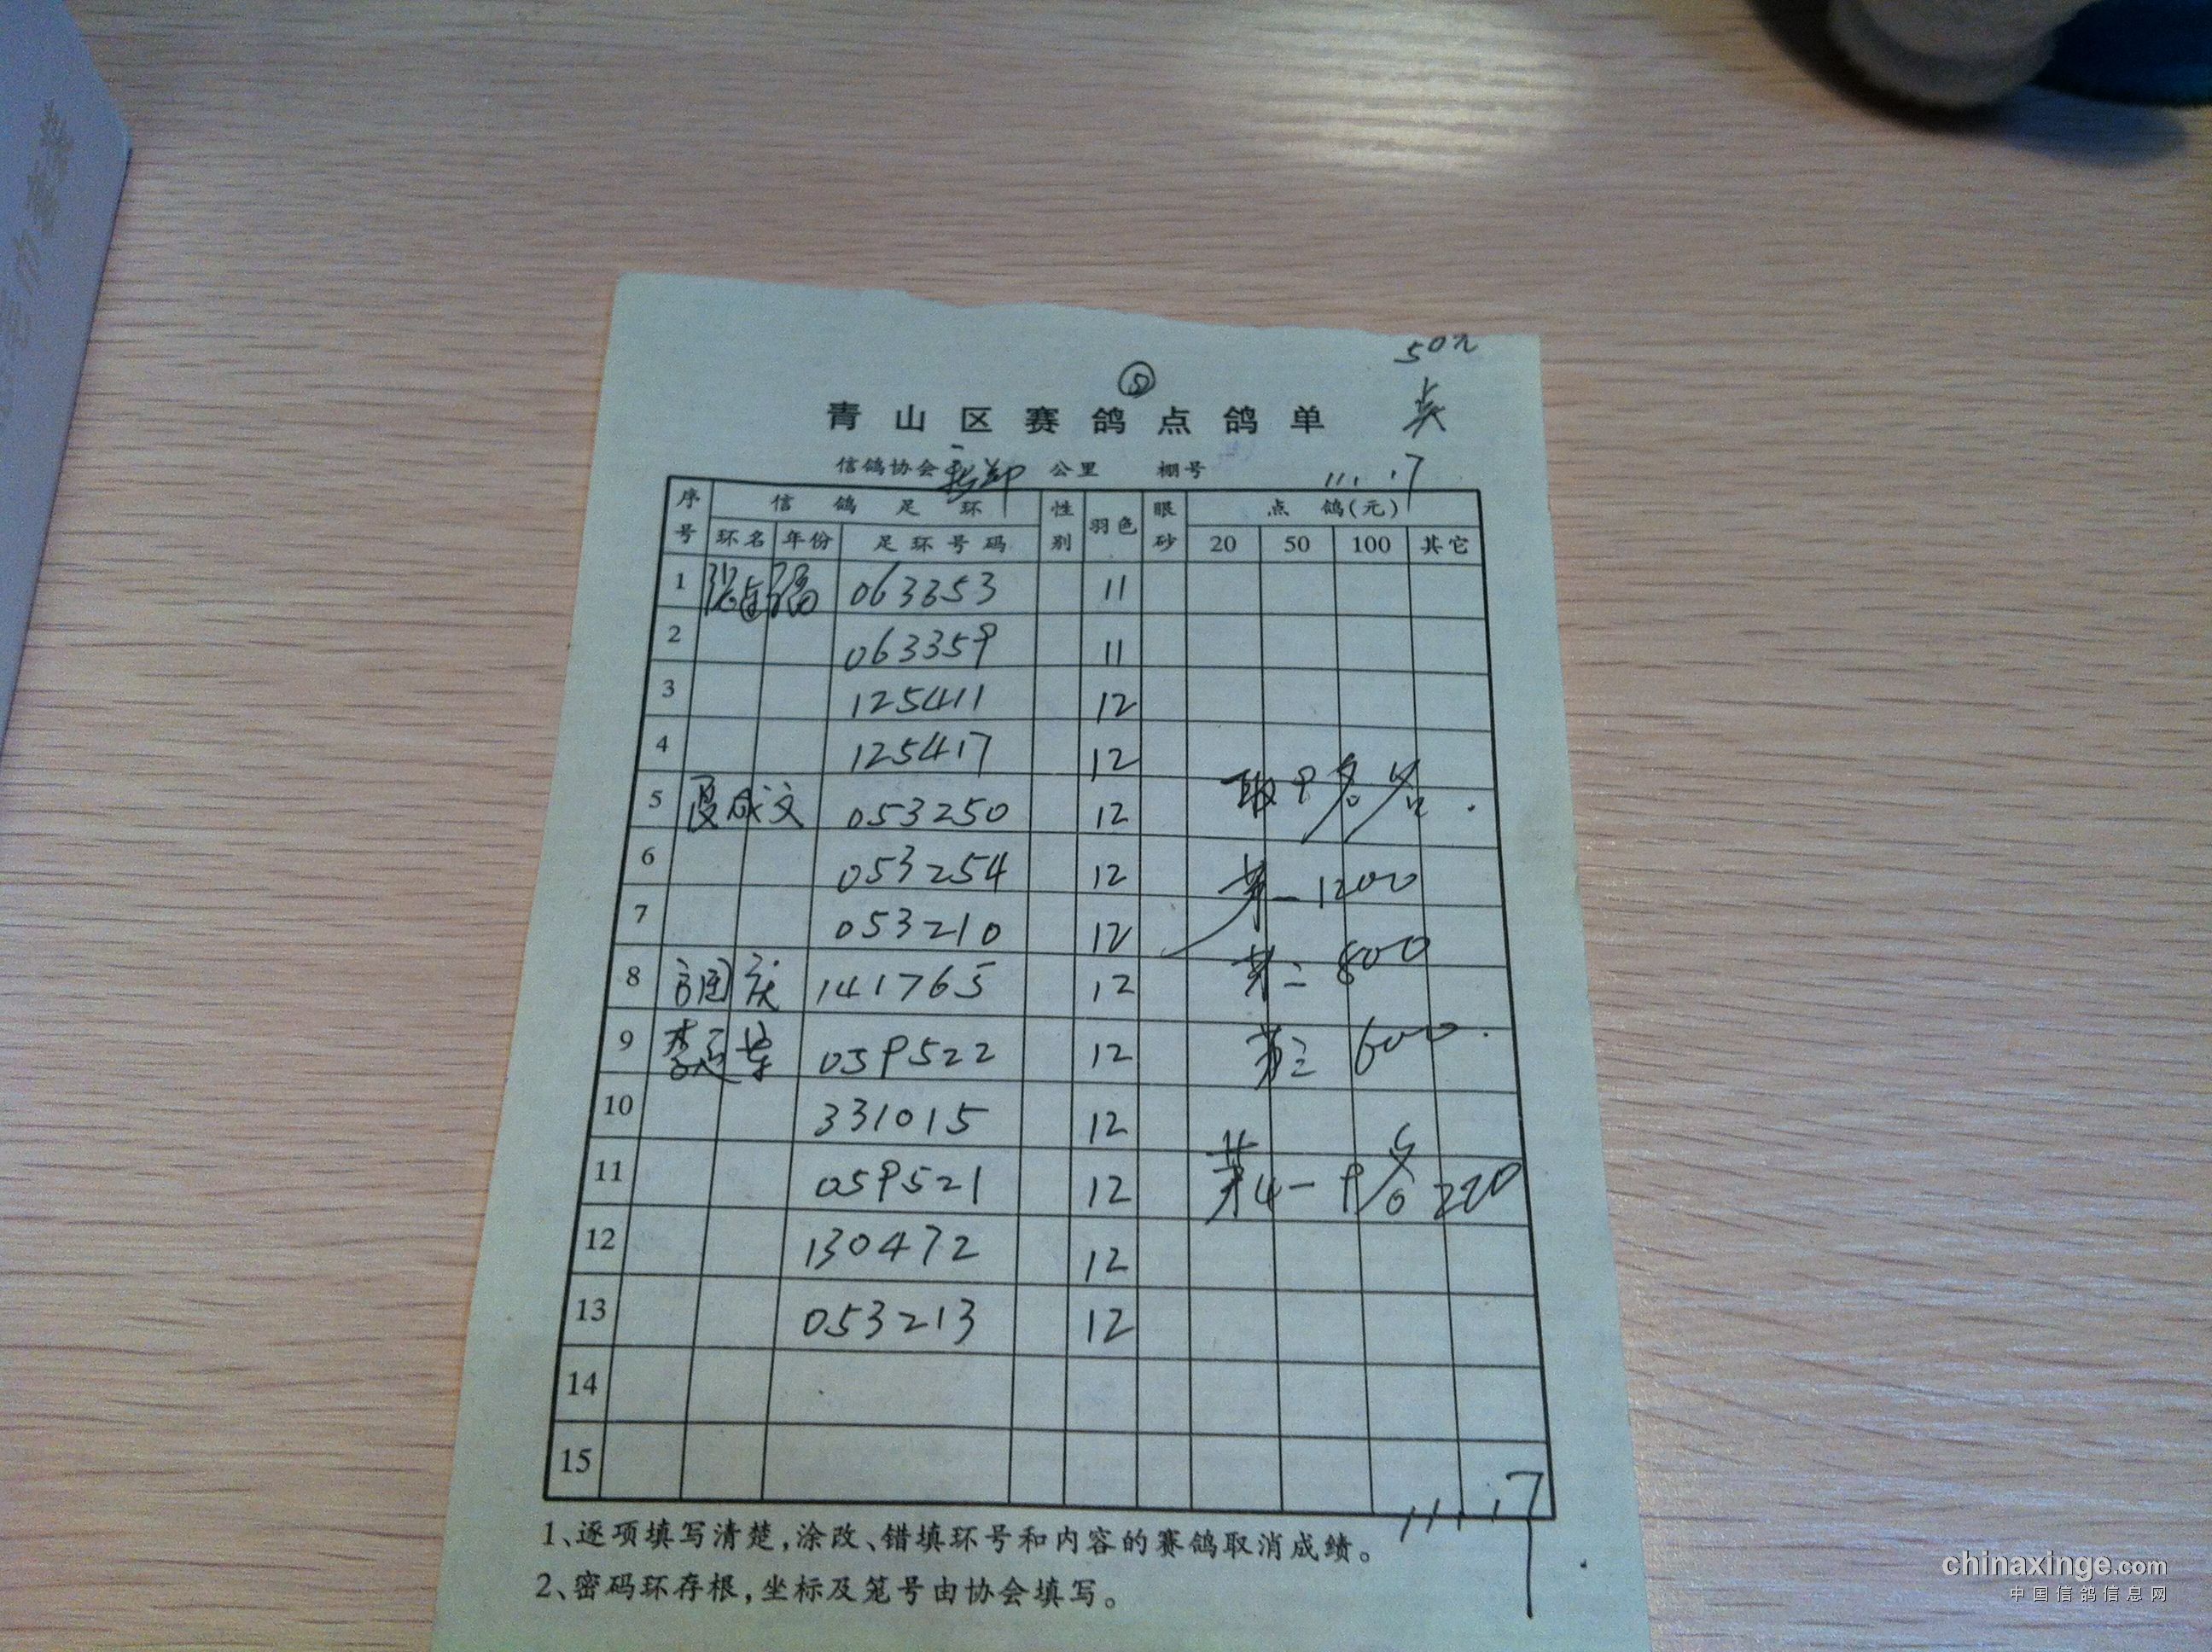 50元
⑤
青山区赛鸽点鸽单
信鸽协会 新郑 公里 棚号
11.17
序号 信鸽足环 性别 羽色 眼砂 点鸽(元)
环名 年份 足环号码 20 50 100 其它
1 063353 11
2 063359 11
3 125411 12
4 125417 12
取9名
5 夏成文 053250 12
6 053254 12 第一 1200
7 053210 12
8 方国庆 141765 12 第二 800
9 059522 12 第三 600
10 331015 12
11 059521 12 第4-9名 220
12 130472 12
13 053213 12
14
15
11.17
1、逐项填写清楚,涂改、错填环号和内容的赛鸽取消成绩。
2、密码环存根,坐标及笼号由协会填写。
chinaxinge.com
中国信鸽信息网